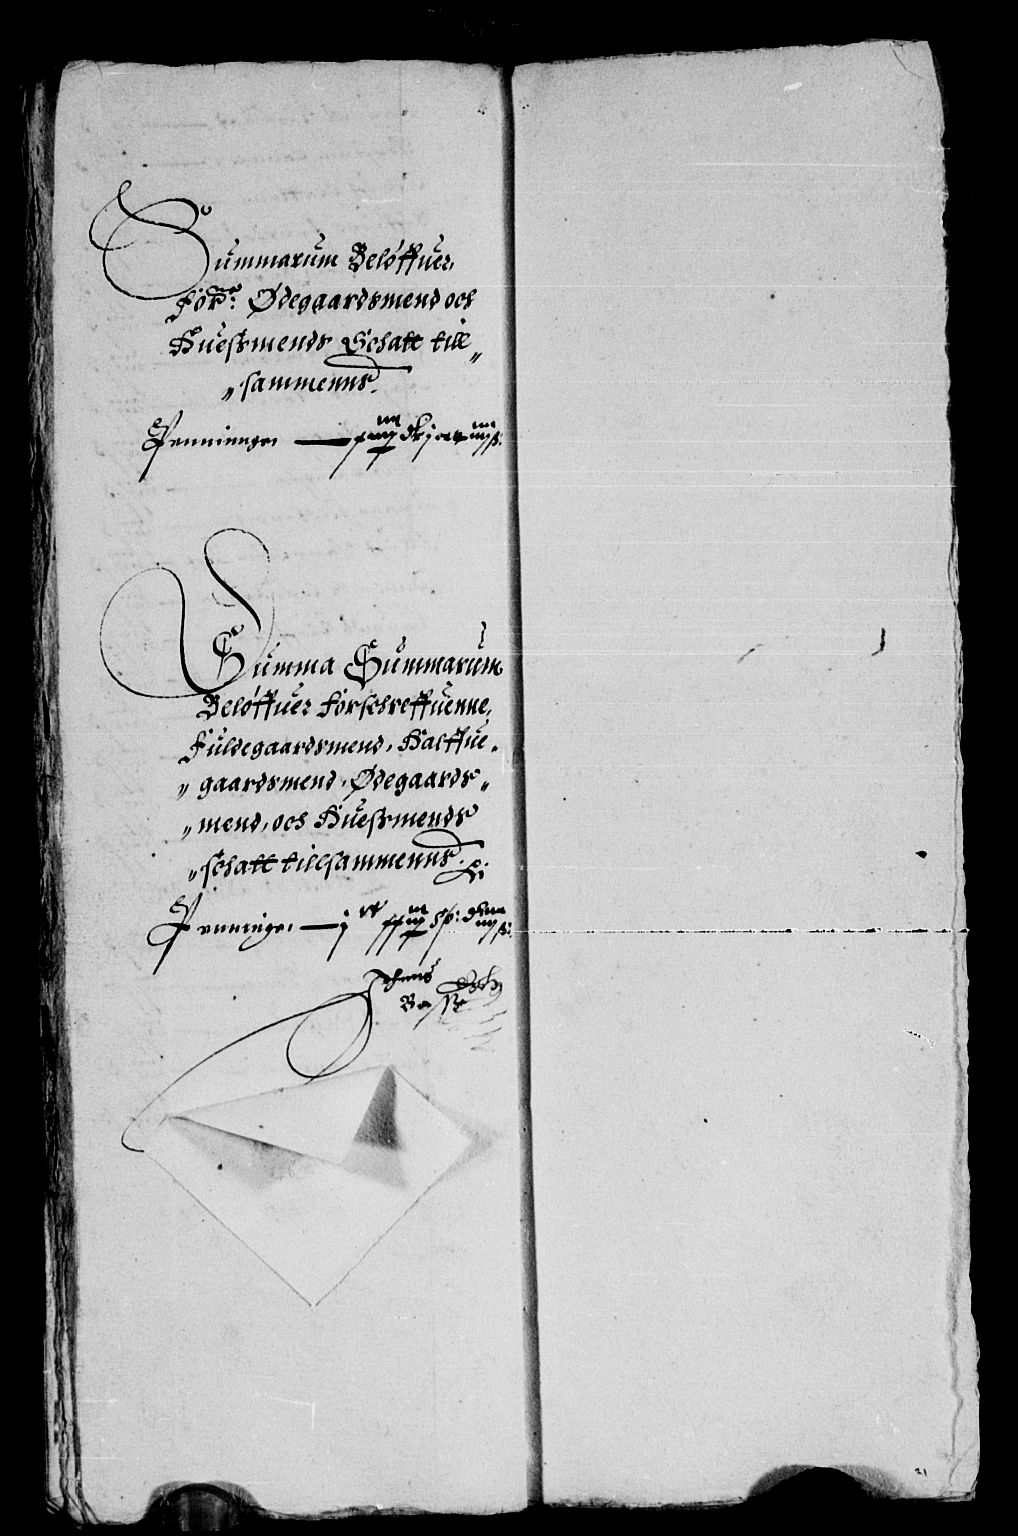 Summarum Beløffuer,
För: Ødegaardsmend och
Huesmends Schatt till„
„sammenns.
Penninnge
Summa Summarum
Beløffuer förschreffuenne,
Fuldegaardsmend, Halffue„
„gaardsmend, Ødegaards„
„mend, och Huesmends
„schatt tillsammenns.
Penninge
Jehens
Basse
21